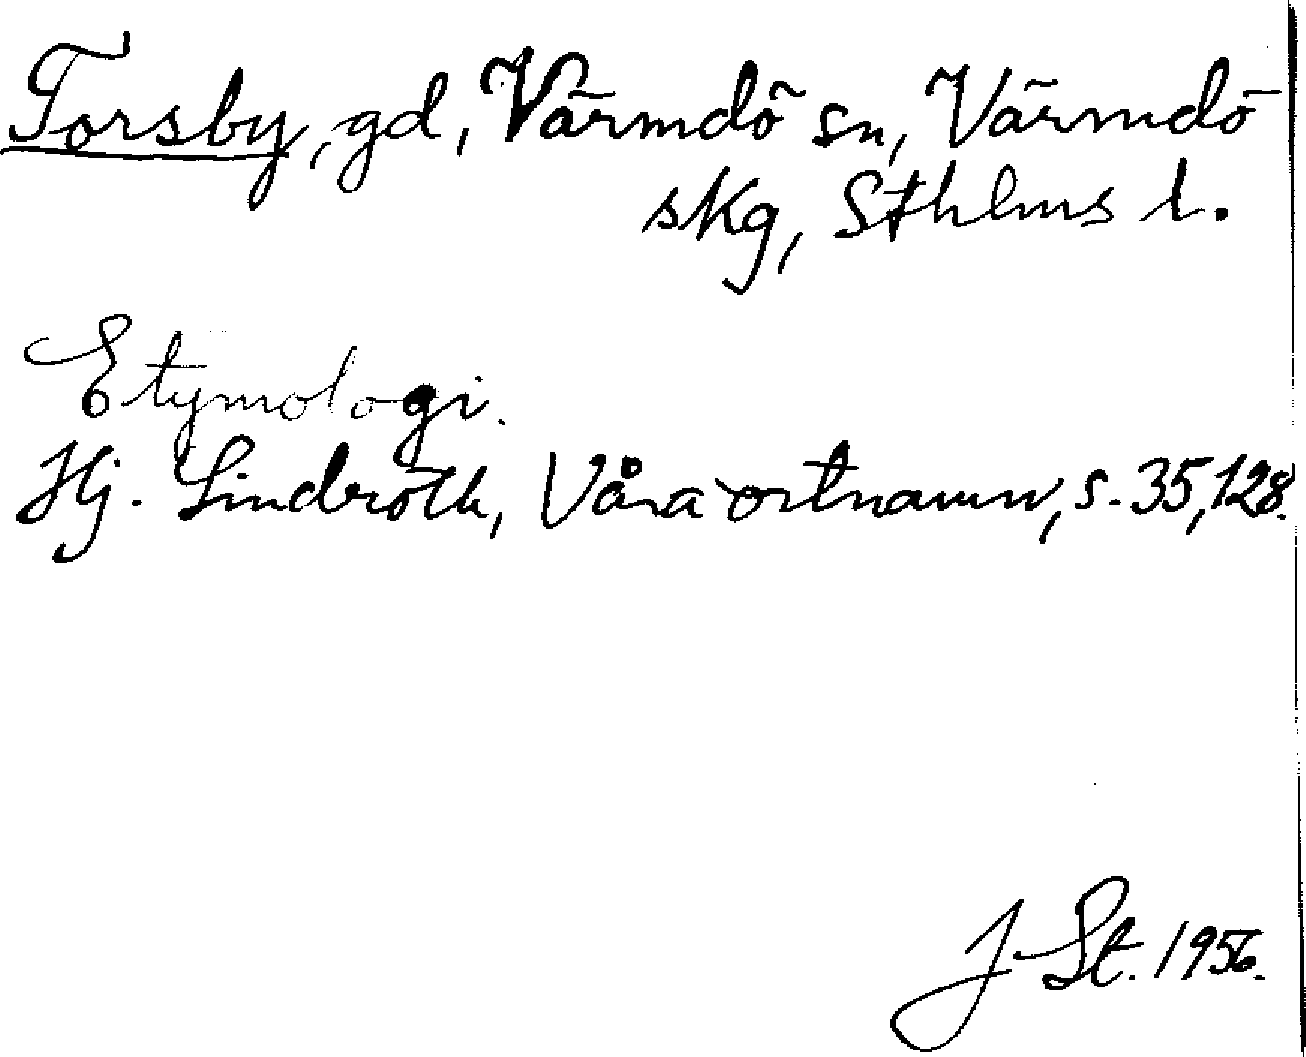 Torsby, gd, Värmdö sn, Värmdö
skg, Sthlms l.
Etymologi.
Hj. Lindroth, Våra ortnamn, s. 35, 128.
J. St. 1956.